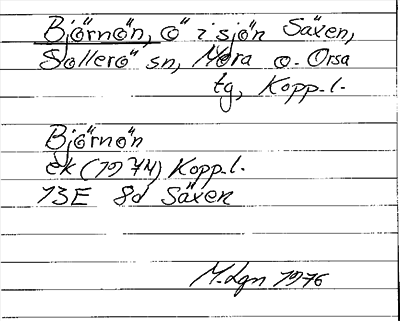 Björnön, ö i sjön Säxen,
Sollerö sn, Mora o. Orsa
tg, Kopp.l.
Björnön
ek (1974) Kopp.l.
13E 8d Säxen
M.Lgn 1976